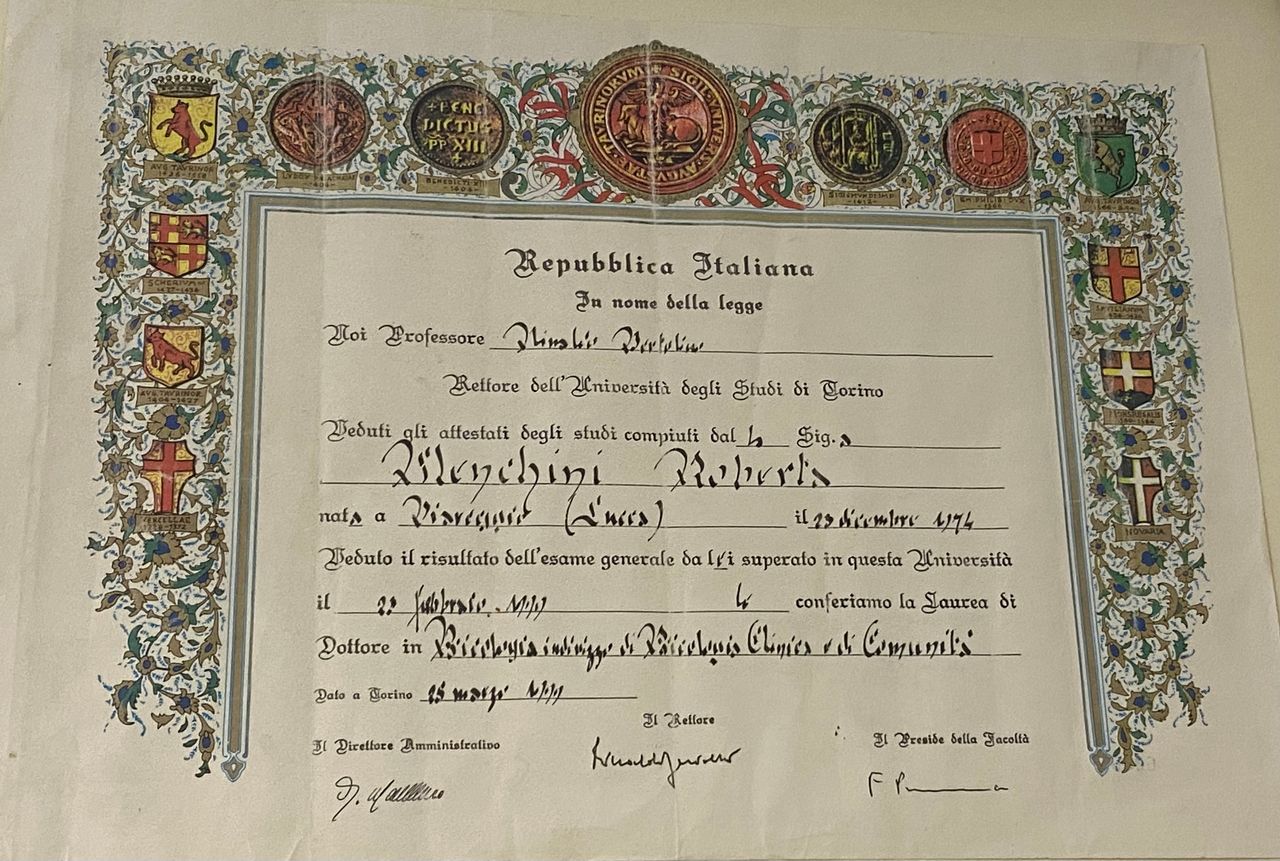 AVGVSTAE TAVRINORVM SIGIL VNIVER
+BENE
DICTUS
PP XIII
SCHERIVM
1427-1436
AVG. TAVRINOR.
1404-1427
VERCELLAE
NOVARIA
Repubblica Italiana
In nome della legge
Noi Professore Rinaldo Bertolino
Rettore dell'Università degli Studi di Torino
Veduti gli attestati degli studi compiuti dal la Sig.a
Menchini Roberta
nata a Viareggio (Lucca) il 23 dicembre 1974
Veduto il risultato dell'esame generale da lei superato in questa Università
il febbraio 1999 le conferiamo la Laurea di
Dottore in Psicologia indirizzo di Psicologia Clinica e di Comunità
Dato a Torino 25 marzo 1999
Il Rettore
Il Direttore Amministrativo
Il Preside della Facoltà